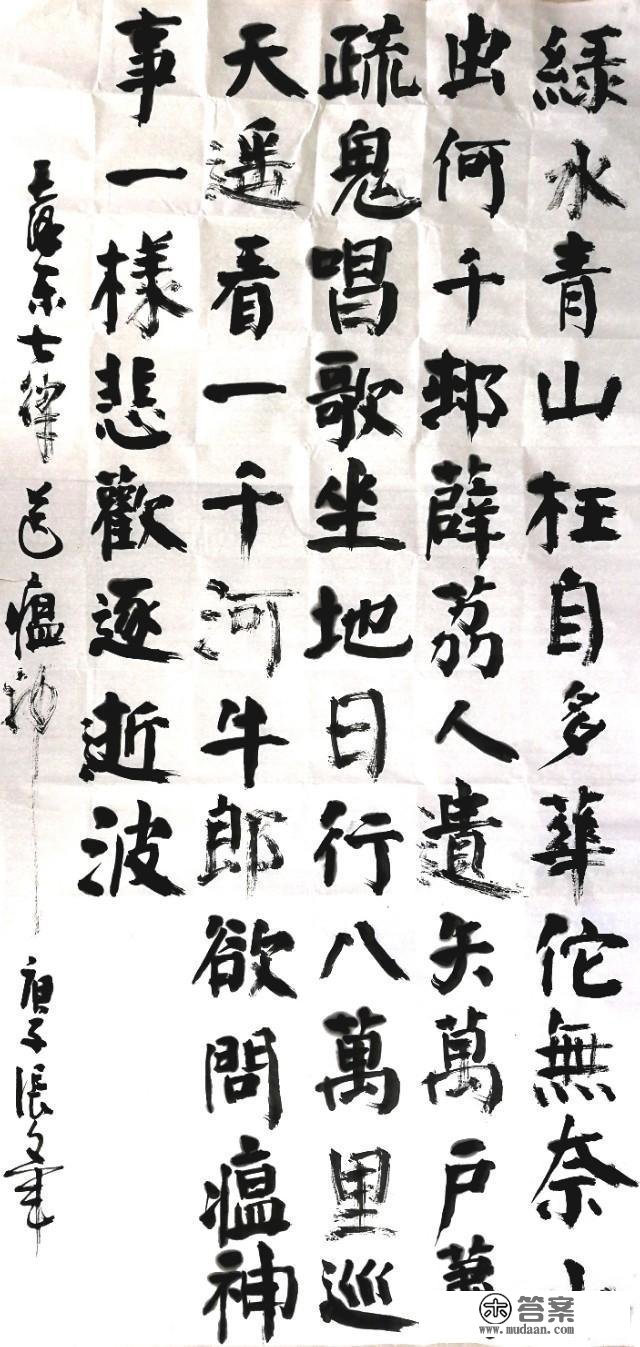 綠水青山枉自多華佗無奈
虫何千邨薜荔人遺矢萬戶蕭
疏鬼唱歌坐地日行八萬里巡
天遥看一千河牛郎欲問瘟神
事一樣悲歡逐逝波
毛澤东七律送瘟神
庚子張文
答案
www.mudaan.com